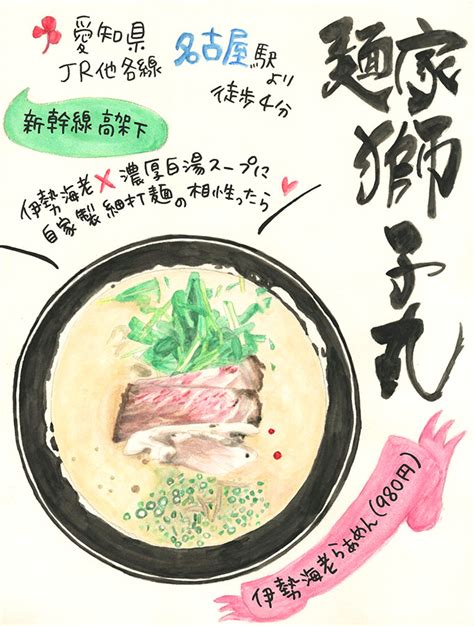 麺家獅子丸
愛知県
JR他各線
名古屋駅
より
徒歩4分
新幹線高架下
伊勢海老×濃厚白湯スープに
自家製細打麺の相性ったら
伊勢海老らあめん(980円)